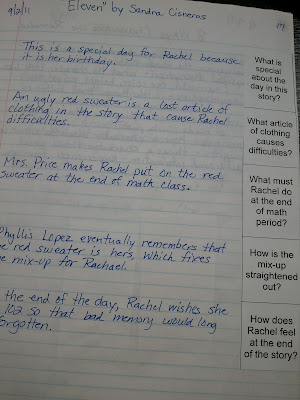 9/2/11 "Eleven" by Sandra Cisneros 19
This is a special day for Rachel because
it is her birthday.
What is
special
about the
day in this
story?
An ugly red sweater is a lost article of
clothing in the story that cause Rachel
difficulties.
What article
of clothing
causes
difficulties?
Mrs. Price makes Rachel put on the red
sweater at the end of math class.
What must
Rachel do
at the end
of math
period?
Phyllis Lopez eventually remembers that
e red sweater is hers, which fixes
e mix-up for Rachael.
How is the
mix-up
straightened
out?
the end of the day, Rachel wishes she
102 so that bad memory would long
forgotten.
How does
Rachel feel
at the end
of the story?